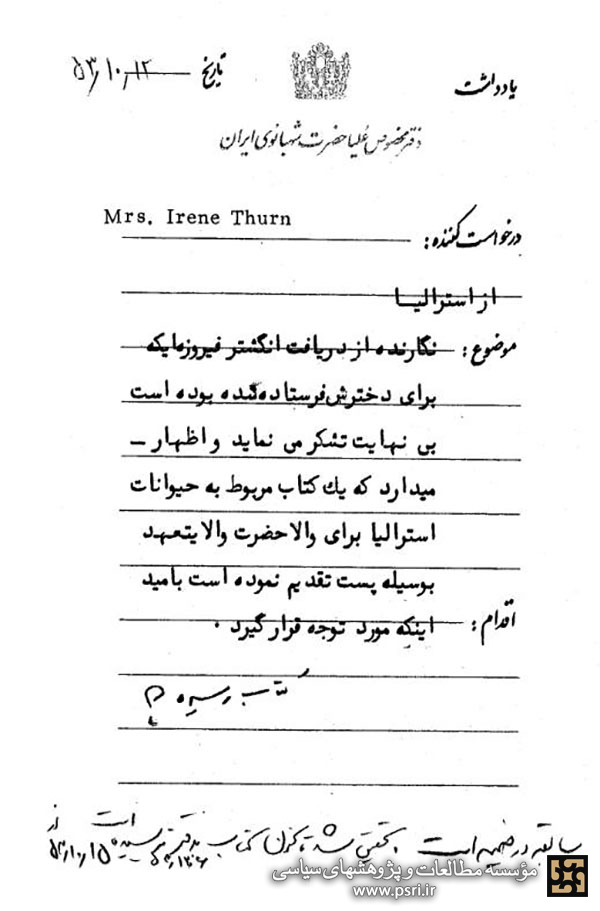 یادداشت
تاریخ ۵۳٫۱۰٫۱۲
دفتر مخصوص علیاحضرت شهبانوی ایران
درخواست کننده: Mrs. Irene Thurn
از استرالیا
موضوع: نگارنده از دریافت انگشتر فیروزهایکه
برای دخترش فرستاده شده بوده است
بی نهایت تشکر می نماید و اظهار –
میدارد که یک کتاب مربوط به حیوانات
استرالیا برای والاحضرت والایتعهد
بوسیله پست تقدیم نموده است بامید
اقدام: اینکه مورد توجه قرار گیرد .
کتاب رسیده
سابقه در ضمیمه است . تحقیق شد تاکنون کتاب بدفتر نرسیده است
مؤسسه مطالعات و پژوهشهای سیاسی
www.psri.ir